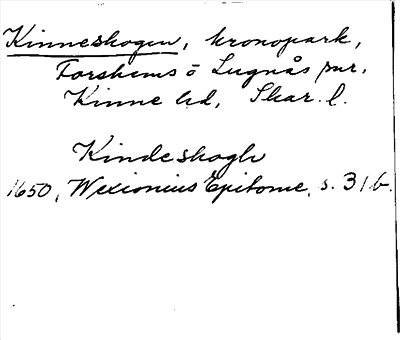 Kinneskogen, kronopark,
Forshems o Lugnås snr,
Kinne hd, Skar. l.
Kindeskogh
1650, Wexionius Epitome, s. 31b.